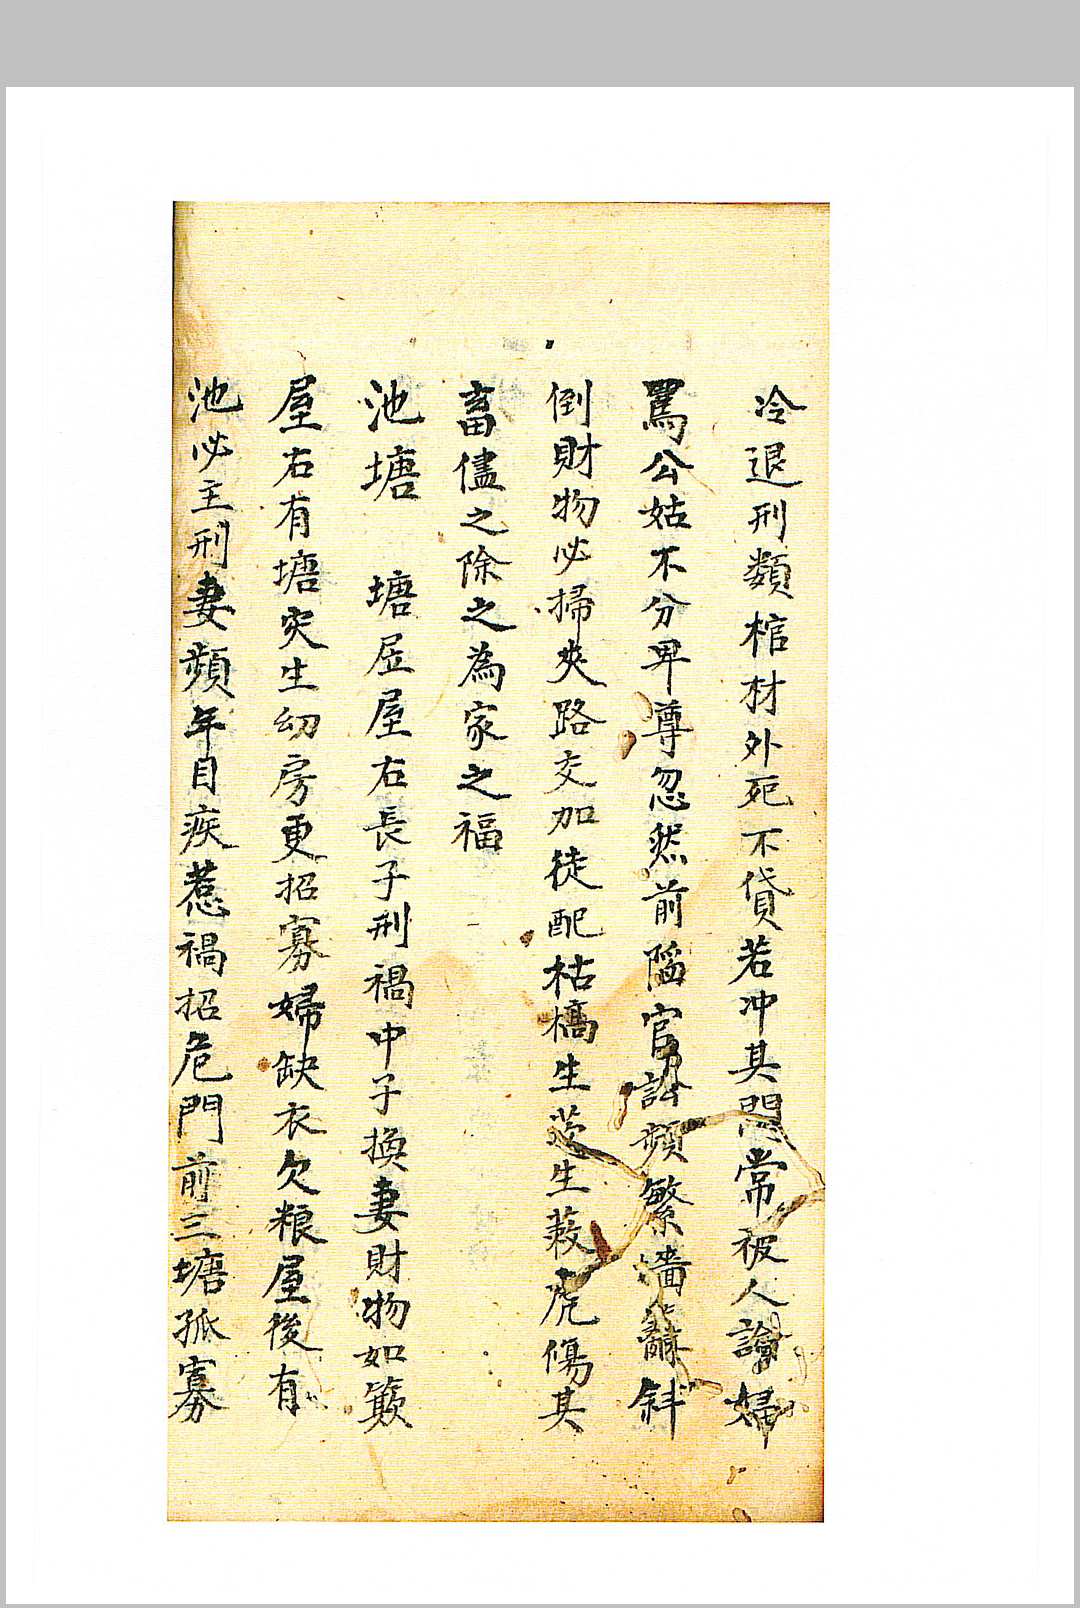 冷退刑類棺材外死不貸若冲其門常被人論婦
罵公姑不分卑尊忽然前陷官訟頻繁墻籬斜
倒財物必掃夾路交加徒配枯槁生苃生蔱虎傷其
畜儘之除之為家之福
池塘　塘居屋右長子刑禍中子換妻財物如簸
屋右有塘災生幼房更招寡婦缺衣欠粮屋後有
池必主刑妻頻年目疾惹禍招危門前三塘孤寡